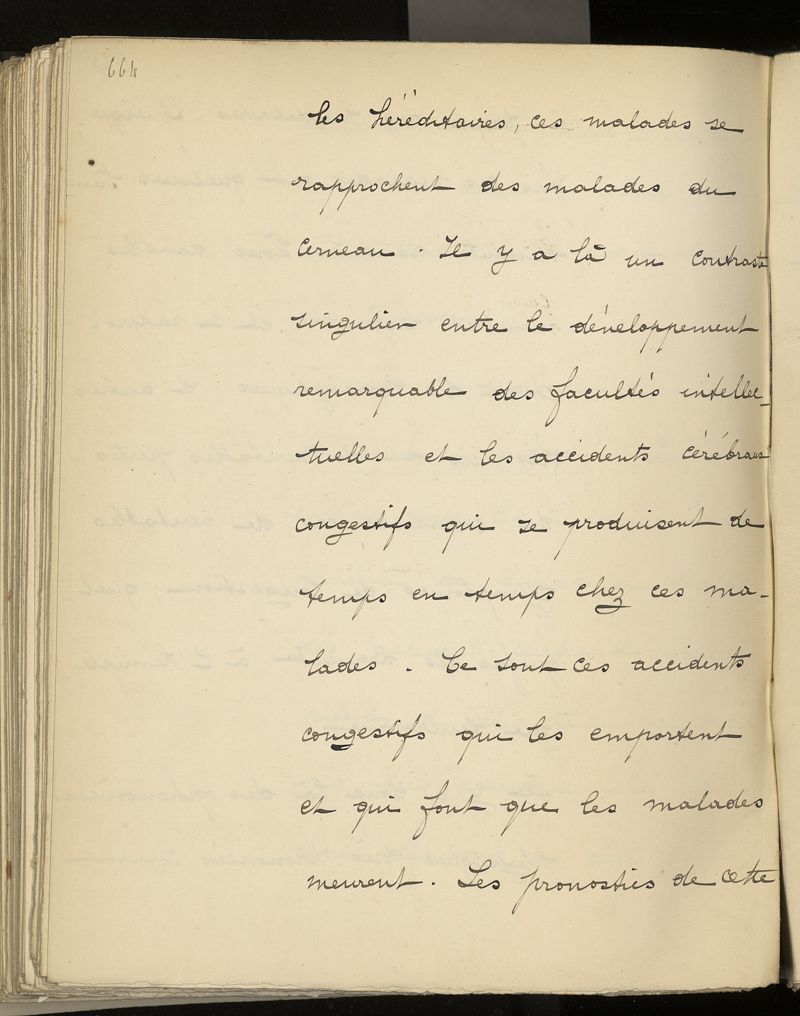 664
les héréditaires, ces malades se
rapprochent des malades du
cerveau. Il y a là un contraste
singulier entre le développement
remarquable des facultés intellec-
tuelles et les accidents cérébraux
congestifs qui se produisent de
temps en temps chez ces ma-
lades. Ce sont ces accidents
congestifs qui les emportent
et qui font que les malades
meurent. Les pronostics de cette